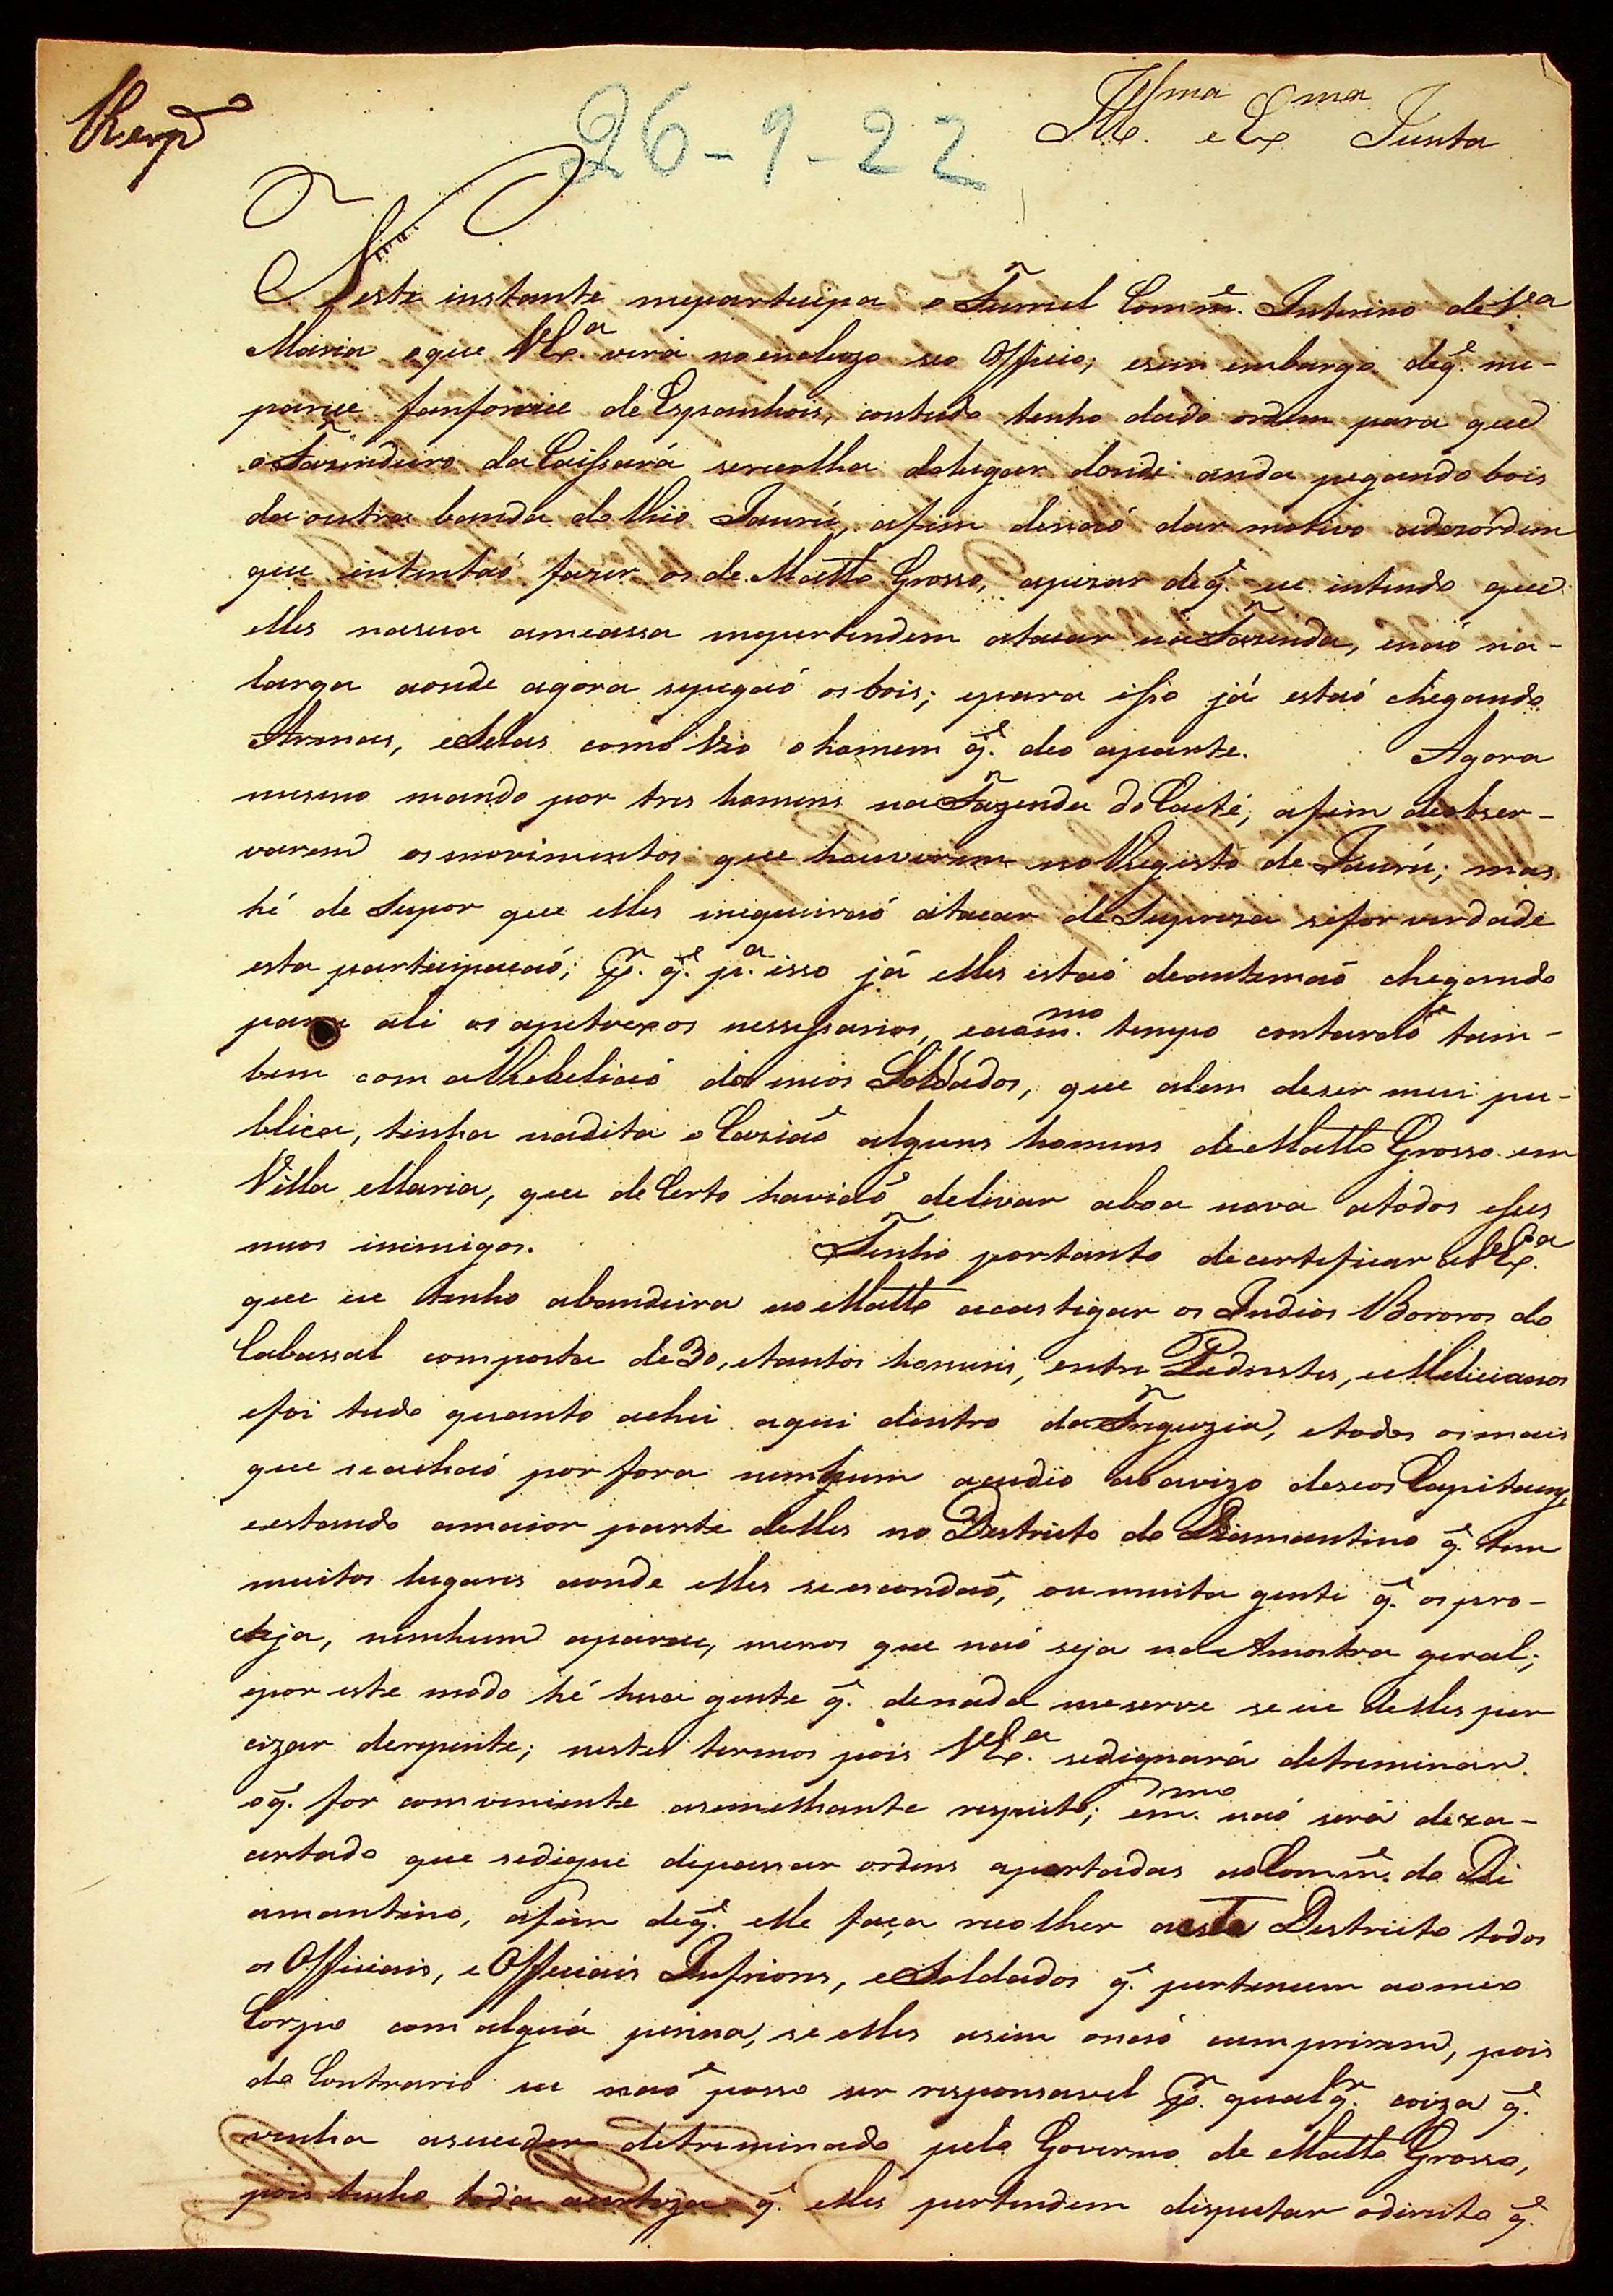 Resp.
26-9-22
Ill.ma e Ex.ma Junta
Neste instante meparticipa o Furriel Comm.e Interino de V.a
Maria oque V.Ex.a verá noincluzo seo Officio; esem embargo deq.e me-
parece fanfonice de Espanhois, contudo tenho dado ordem para que
o Fazendeiro da Caissará serecolha dolugar donde anda pegando bois
da outra banda do Rio Jaurú, afim denaõ dar motivo adezordem
que intentaõ fazer os de Matto Grosso, apezar deq.e eu intendo que
elles nasua ameassa mepertendem atacar na Fazenda, enaõ na-
larga aonde agora sepegaõ os bois; epara isso já estaõ chegando
Armas, eSelas como vio o homem q.e deo aparte. Agora
mesmo mando por tres homens na Fazenda do Caité, afim deobser-
varem osmovimentos que houverem no Registo de Jaurú; mas
hé de Supor que elles mequeiraõ atacar de Supreza sefor verdade
esta participacaõ; p.r q.e p.a isso já elles estaõ deantemaõ chegando
para ali os apetrexos nessessarios, eaom.mo tempo contaraõ tam-
bem com a Rebeliaõ dos meos Soldados, que alem deser mui pu-
blica, tinha nadita o Caziaõ alguns homens de Matto Grosso em
Villa Maria, que de Certo haviaõ delevar aboa nova atodos esses
meos inimigos. Tenho portanto decertificar a V.Ex.a
que eu tenho abandeira no Matto acastigar os Indios Bororos do
Cabassal composta de 30, etantos homens, entre Pedrestes, eMilicianos
efoi tudo quanto achei aqui dentro da Freguzia, etodos osmais
que seachaõ por fora nenhum acudio aoavizo deseos Capitaens
eestando amaior parte delles no Destricto do Diamantino q.e tem
muitos lugares aonde elles seescondaõ, ou muita gente q.e os pro-
teja, nimhum aparece, menos que naõ seja na Amostra geral;
epor este modo hé hua gente q.e denada meserve se eu delles per
cizar derepente; nestes termos pois V.Ex.a sedignará detreminar
oq.e for comveniente asemelhante respeito; em.mo naõ será deza-
certado que sedigne depassar ordens apertadas ao Comm.e do Di
amantino, afim deq.e elle faça recolher aeste Destricto todos
os Officiais, e Officiais Inferiores, eSoldados q.e pertencem aomeo
Corpo com alguã penna, se elles asim onaõ cumprirem, pois
do Contrario eu naõ posso ser responsavel p.r qualq.r coiza q.e
venha asuceder detreminado pelo Governo de Matto Grosso,
pois tenho toda acerteza q.e elles pertendem disputar odireito q.e